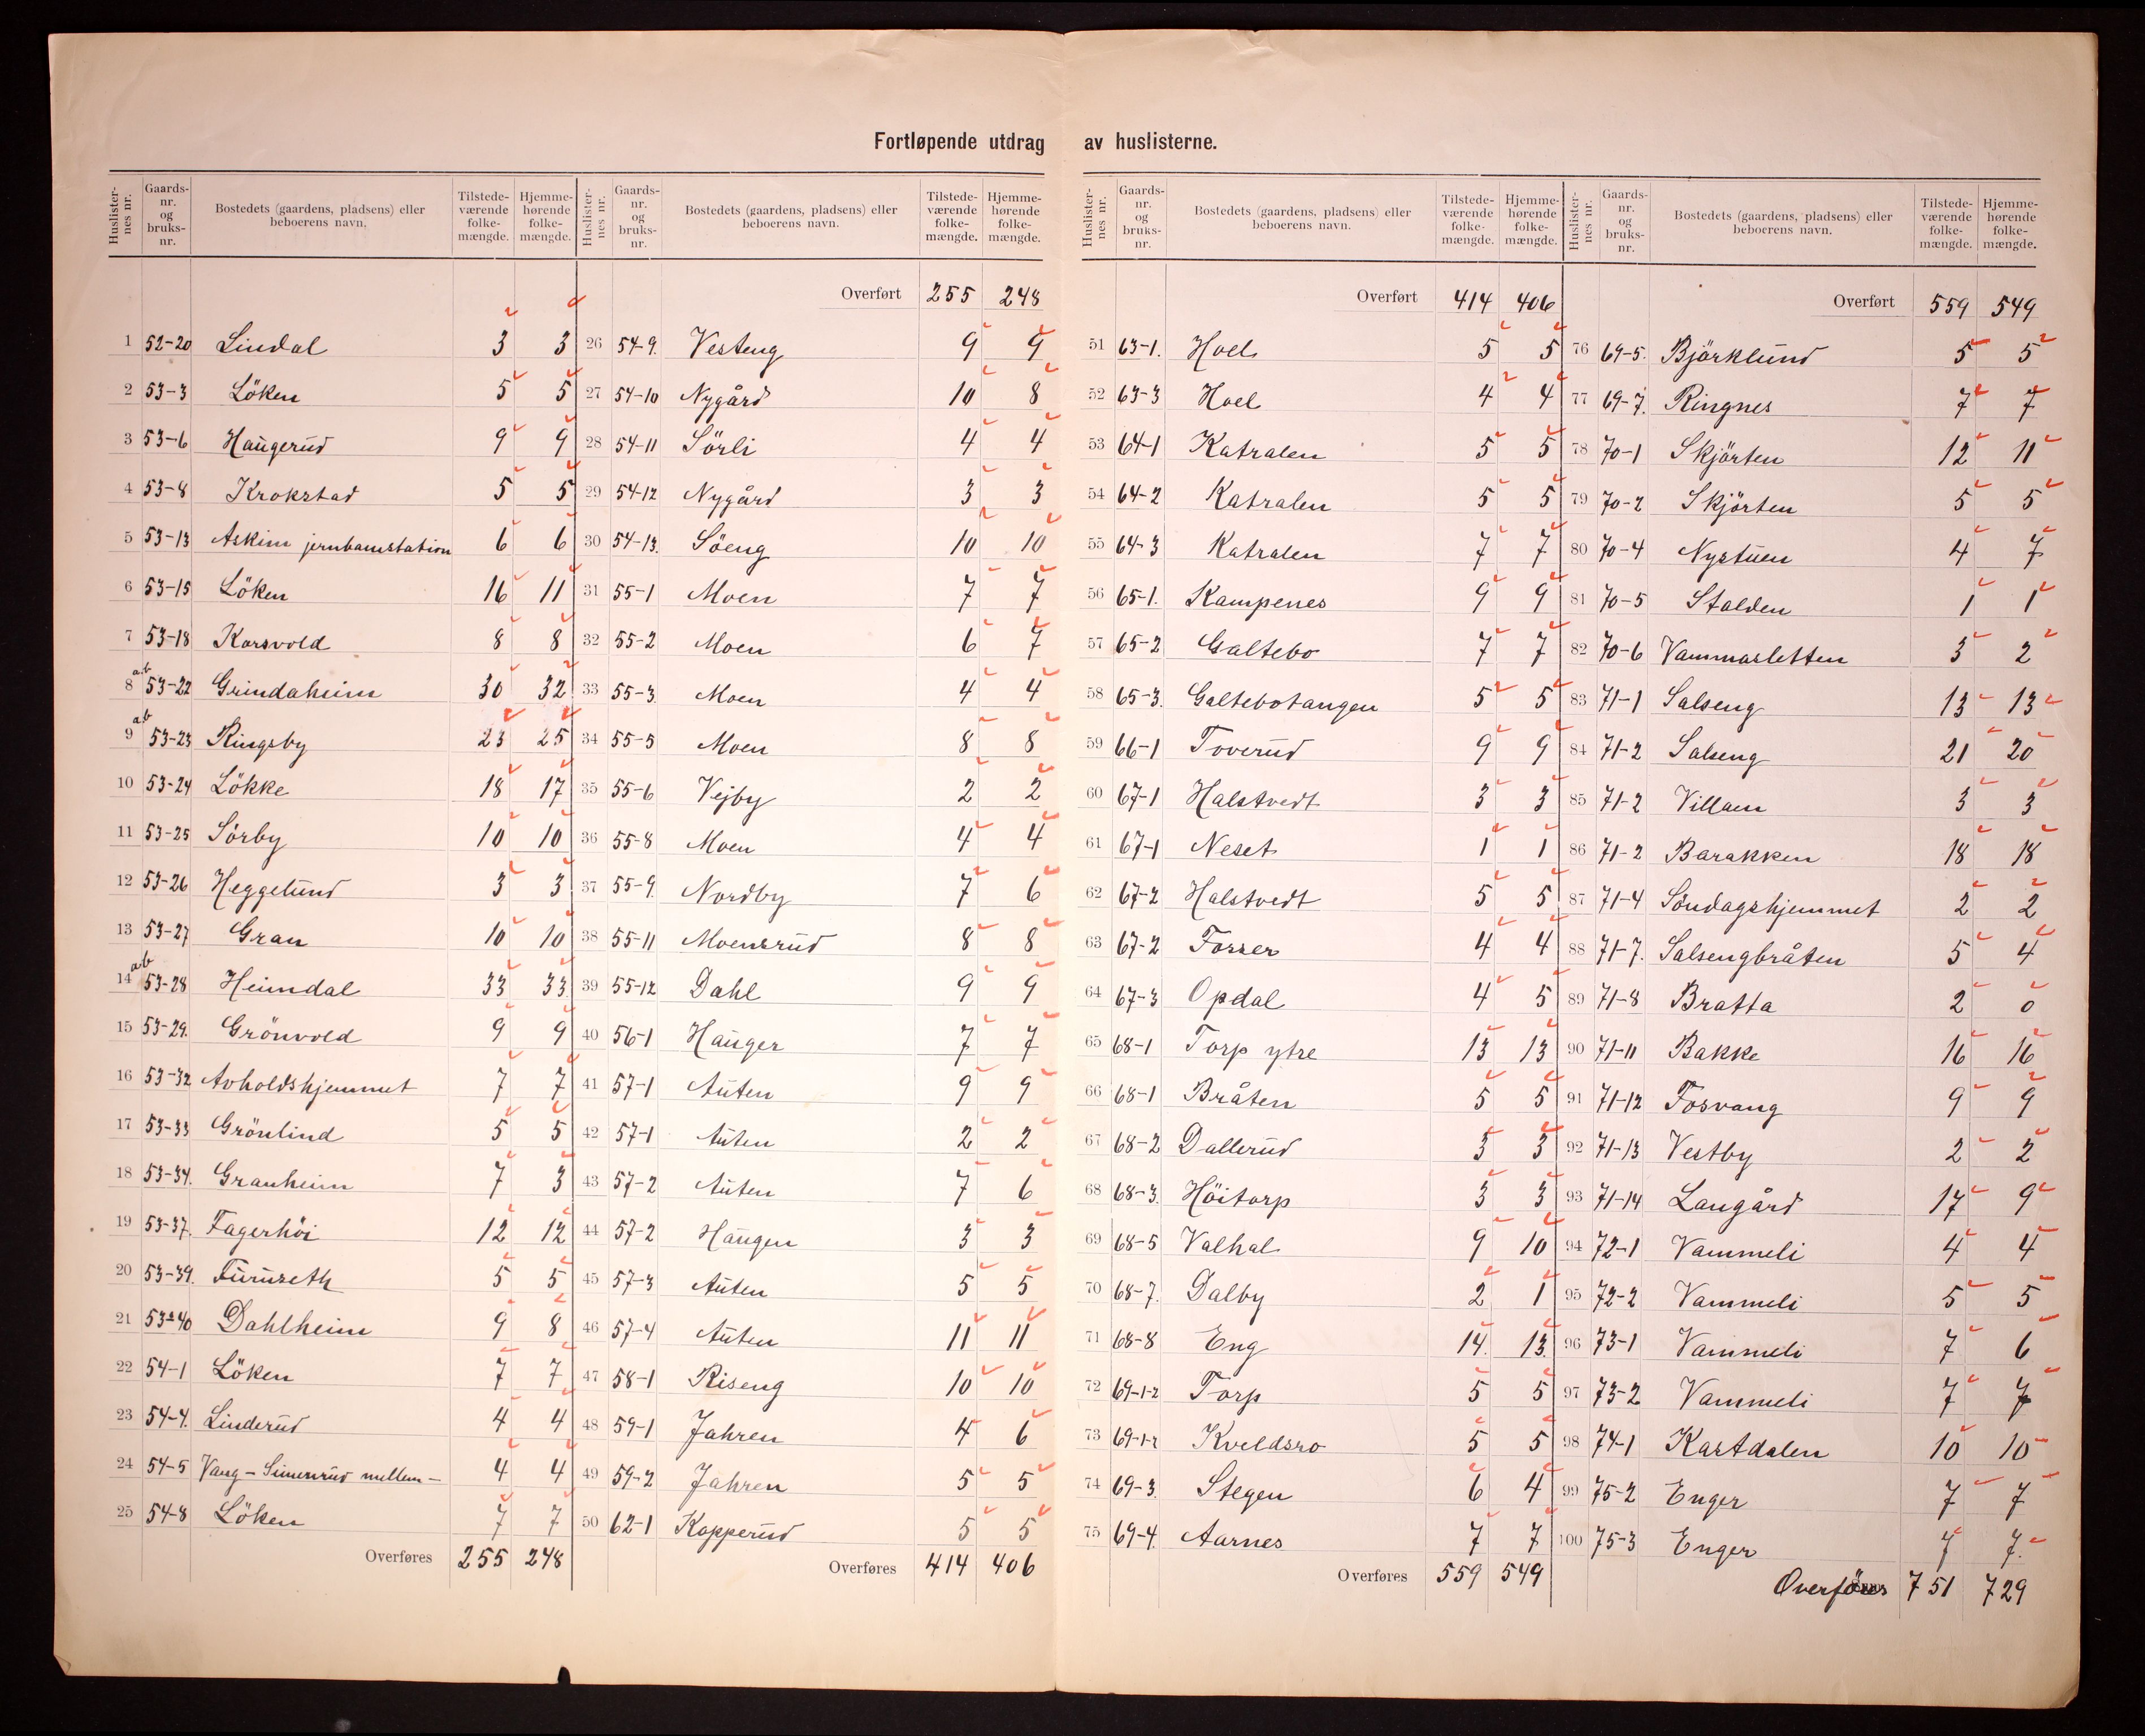 Fortløpende utdrag av huslisterne.
Huslisternes nr. Gaards-nr. og bruks-nr. Bostedets (gaardens, pladsens) eller beboerens navn. Tilstede-værende folke-mængde. Hjemme-hørende folke-mængde.
1 52-20 Lindal 3 3
2 53-3 Löken 5 5
3 53-6 Haugerud 9 9
4 53-8 Krokstad 5 5
5 53-13 Askim jernbanestation 6 6
6 53-15 Löken 16 11
7 53-18 Korsvold 8 8
8 ab 53-22 Grindaheim 30 32
9 ab 53-23 Ringsby 23 25
10 53-24 Lökke 18 17
11 53-25 Sörby 10 10
12 53-26 Heggelund 3 3
13 53-27 Gran 10 10
14 ab 53-28 Heimdal 33 33
15 53-29. Grönvold 9 9
16 53-32 Avholdshjemmet 7 7
17 53-33 Grönlind 5 5
18 53-34. Granheim 7 3
19 53-37. Fagerhöi 12 12
20 53-39. Furuseth 5 5
21 53-40 Dahlheim 9 8
22 54-1 Löken 7 7
23 54-4. Linderud 4 4
24 54-5 Vang - Simenrud mellem - 4 4
25 54-8 Löken 7 7
Overføres 255 248
Huslisternes nr. Gaards-nr. og bruks-nr. Bostedets (gaardens, pladsens) eller beboerens navn. Tilstede-værende folke-mængde. Hjemme-hørende folke-mængde.
Overført 255 248
26 54-9. Vesteng 9 9
27 54-10 Nygård 10 8
28 54-11 Sörli 4 4
29 54-12 Nygård 3 3
30 54-13. Söeng 10 10
31 55-1 Moen 7 7
32 55-2 Moen 6 7
33 55-3 Moen 4 4
34 55-5 Moen 8 8
35 55-6 Vejby 2 2
36 55-8 Moen 4 4
37 55-9. Nordby 7 6
38 55-11 Moensrud 8 8
39 55-12 Dahl 9 9
40 56-1 Hauger 7 7
41 57-1 Auten 9 9
42 57-1 Auten 2 2
43 57-2 Auten 7 6
44 57-2 Haugen 3 3
45 57-3 Auten 5 5
46 57-4 Auten 11 11
47 58-1 Riseng 10 10
48 59-1 Jahren 4 6
49 59-2 Jahren 5 5
50 62-1 Kopperud 5 5
Overføres 414 406
Huslisternes nr. Gaards-nr. og bruks-nr. Bostedets (gaardens, pladsens) eller beboerens navn. Tilstede-værende folke-mængde. Hjemme-hørende folke-mængde.
Overført 414 406
51 63-1. Hoel 5 5
52 63-3 Hoel 4 4
53 64-1 Katralen 5 5
54 64-2 Katralen 5 5
55 64-3 Katralen 7 7
56 65-1. Kampenes 9 9
57 65-2 Galtebo 7 7
58 65-3. Galtebotangen 5 5
59 66-1 Toverud 9 9
60 67-1 Halstvedt 3 3
61 67-1 Neset 1 1
62 67-2 Halstvedt 5 5
63 67-2 Fosser 4 4
64 67-3 Opdal 4 5
65 68-1 Torp ytre 13 13
66 68-1 Bråten 5 5
67 68-2 Dallerud 3 3
68 68-3. Höitorp 3 3
69 68-5 Valhal 9 10
70 68-7. Dalby 2 1
71 68-8 Eng 14. 13.
72 69-1-2 Torp 5 5
73 69-1-2 Kveldsro 5 5
74 69-3. Stegen 6 4
75 69-4. Aarnes 7 7
Overføres 559 549
Huslisternes nr. Gaards-nr. og bruks-nr. Bostedets (gaardens, pladsens) eller beboerens navn. Tilstede-værende folke-mængde. Hjemme-hørende folke-mængde.
Overført 559 549
76 69-5. Björklund 5 5
77 69-7. Ringnes 7 7
78 70-1 Skjörten 12 11
79 70-2 Skjörten 5 5
80 70-4 Nystuen 4 7
81 70-5 Stalden 1 1
82 70-6 Vammasletten 3 2
83 71-1 Salseng 13 13
84 71-2 Salseng 21 20
85 71-2 Villaen 3 3
86 71-2 Barakken 18 18
87 71-4 Söndagshjemmet 2 2
88 71-7. Salsengbråten 5 4
89 71-8 Bratta 2 0
90 71-11 Bakke 16 16
91 71-12 Fosvang 9 9
92 71-13 Vestby 2 2
93 71-14 Langård 17 9
94 72-1 Vammeli 4 4
95 72-2 Vammeli 5 5
96 73-1 Vammeli 7 6
97 73-2 Vammeli 7 7
98 74-1 Kastdalen 10 10
99 75-2 Enger 7 7
100 75-3 Enger 7 7.
Overföres 751 729